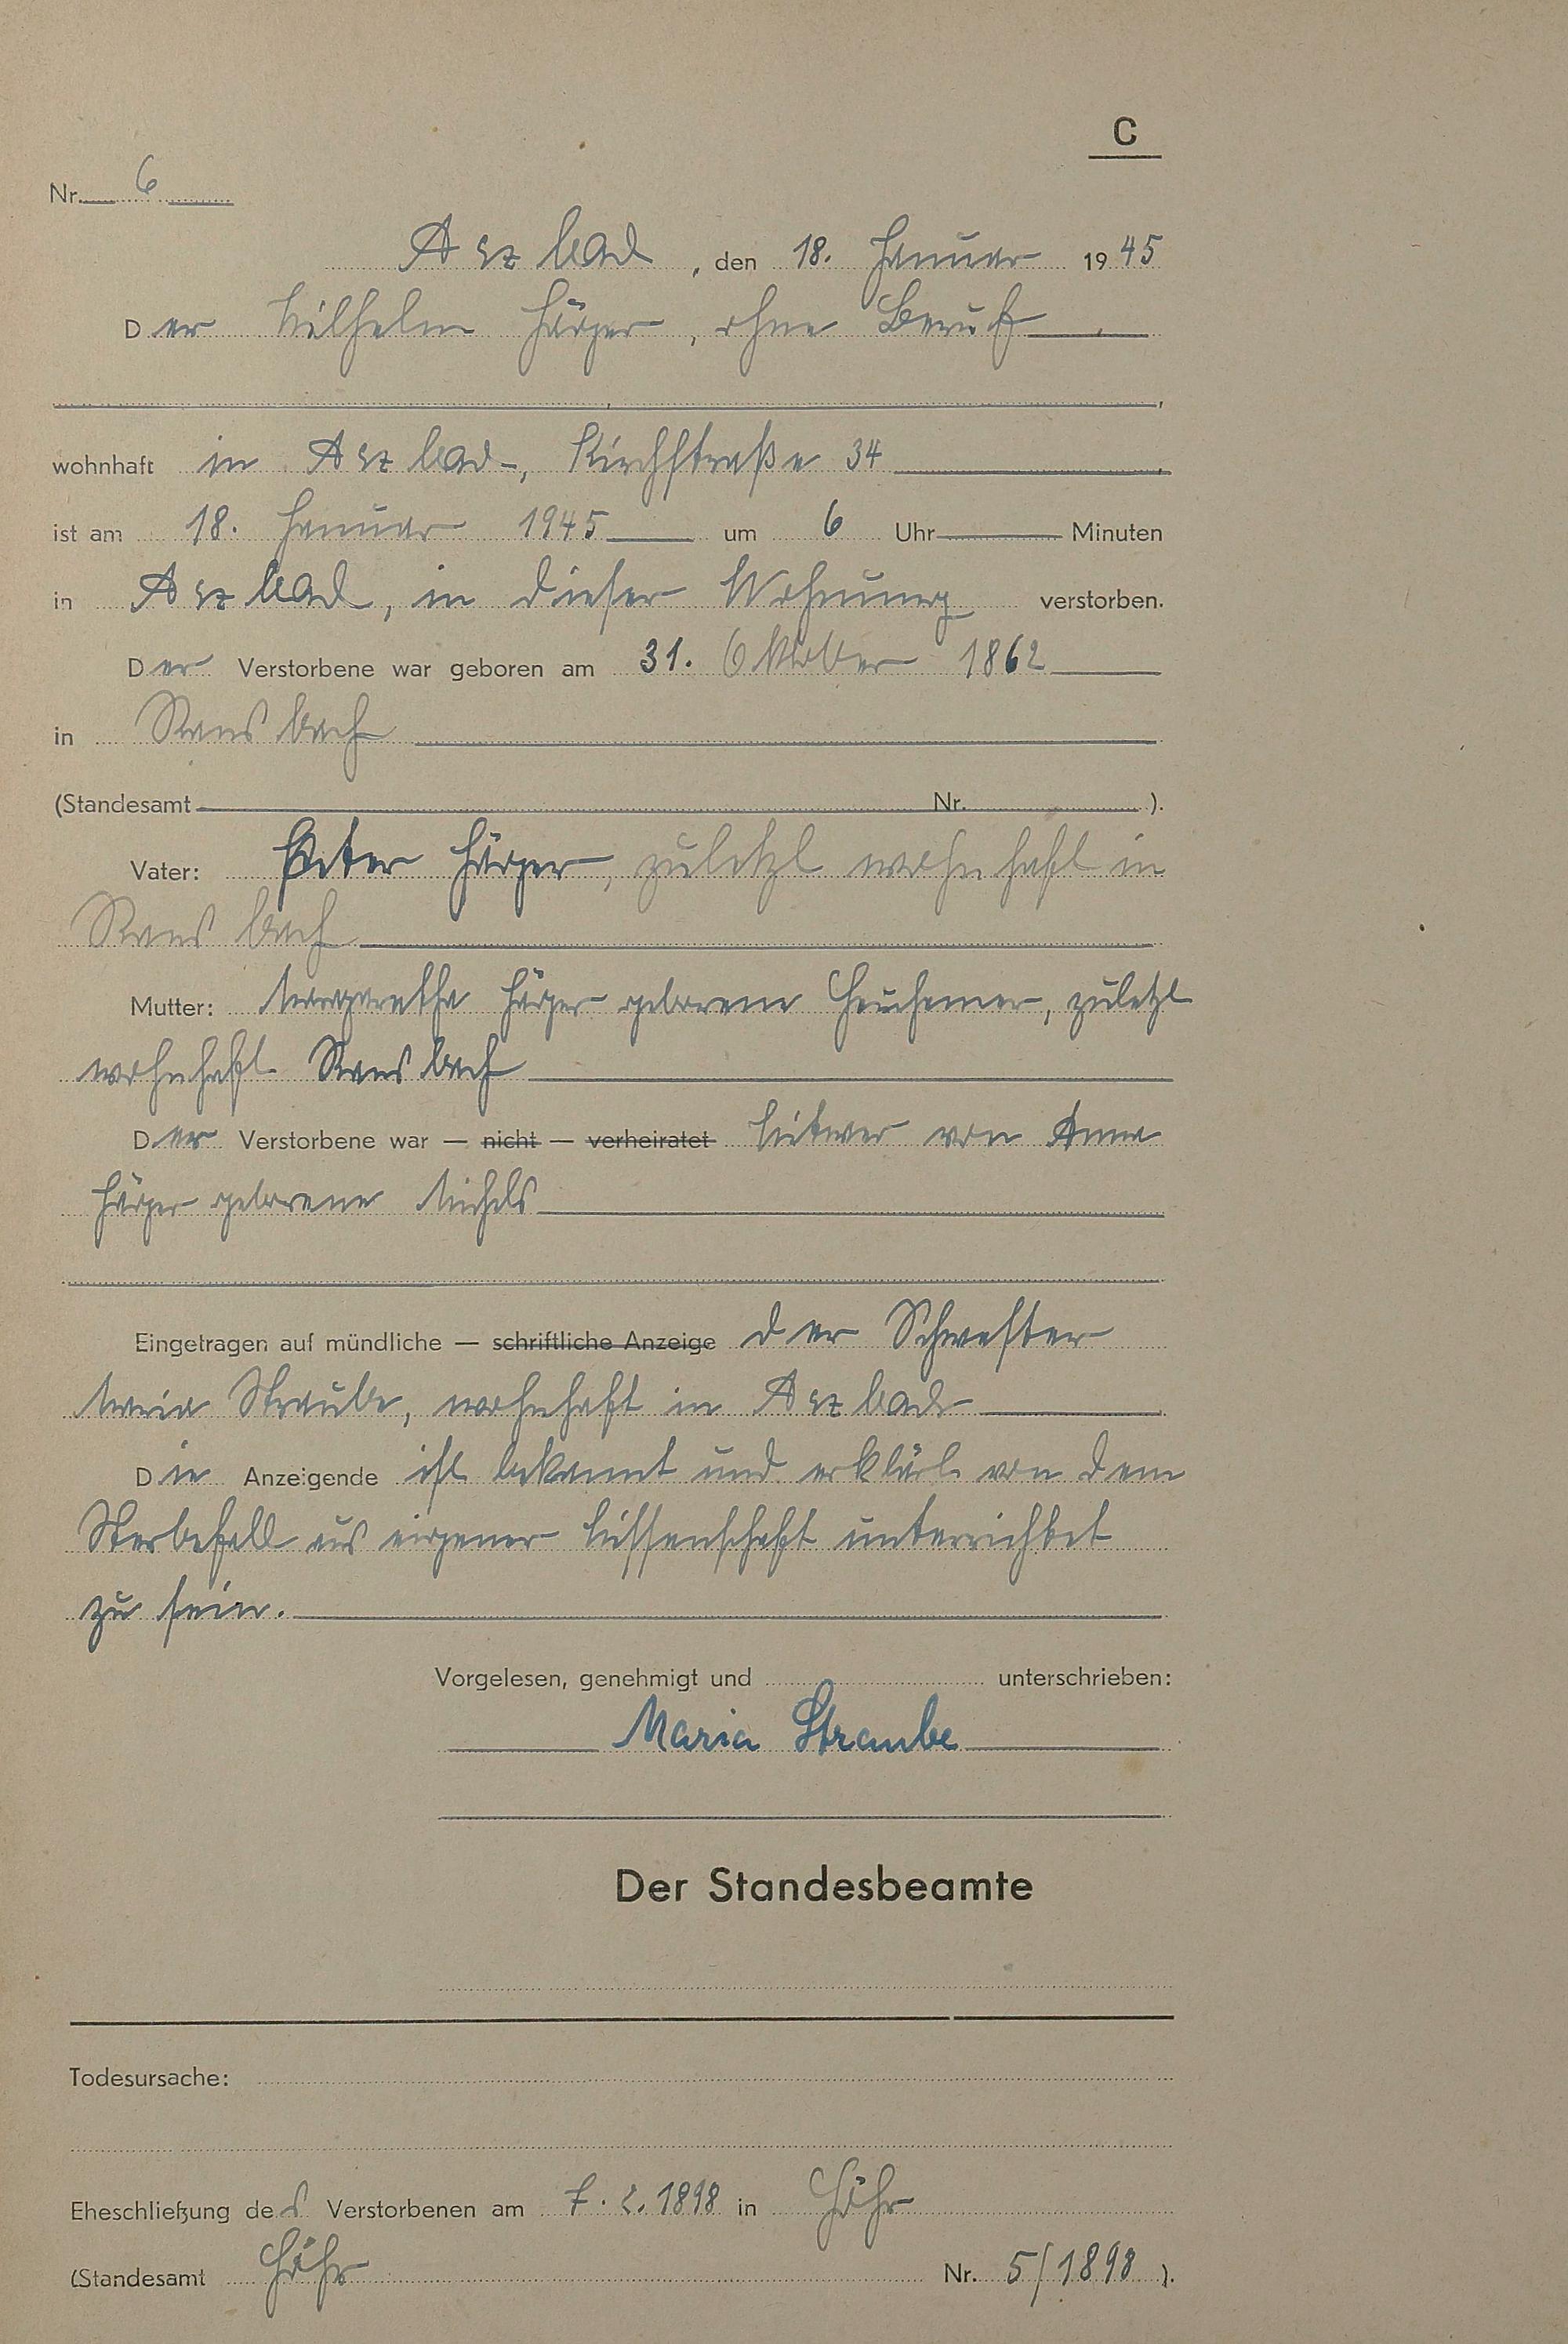 C
Nr. 6
Arzbach, den 18. Januar 1945
Der Wilhelm Jäger, ohne Beruf
wohnhaft in Arzbach, Kirchstraße 34
ist am 18. Januar 1945 um 6 Uhr Minuten
in Arzbach, in dieser Wohnung verstorben.
Der Verstorbene war geboren am 31. Oktober 1862
in Ransbach
(Standesamt Nr. ).
Vater: Peter Jäger, zuletzt wohnhaft in
Ransbach
Mutter: Margaretha Jäger geborene Heuchemer, zuletzt
wohnhaft Ransbach
Der Verstorbene war — nicht — verheiratet Witwer von Anna
Jäger geborene Michels
Eingetragen auf mündliche — schriftliche Anzeige der Schwester
Maria Straube, wohnhaft in Arzbach
Die Anzeigende ist bekannt und erklärt von dem
Sterbefall aus eigener Wissenschaft unterrichtet
zu sein.
Vorgelesen, genehmigt und unterschrieben:
Maria Straube
Der Standesbeamte
Todesursache:
Eheschließung des Verstorbenen am 7. 2. 1898 in Höhr
(Standesamt Höhr Nr. 5/1898 ).